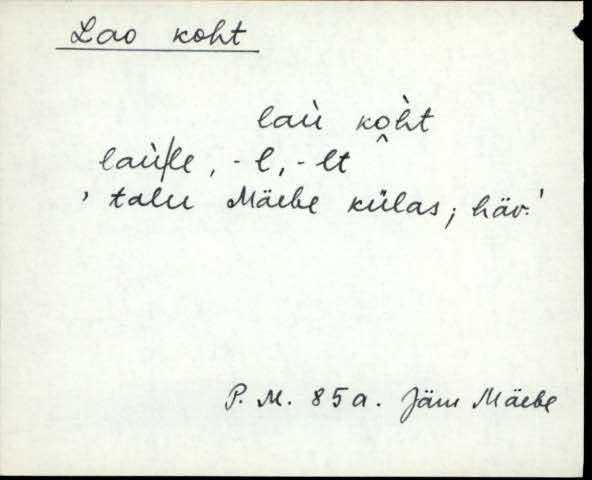 Lao koht
laù kồht
laù|le, -l, -lt
' talu Mäebe külas; häv.'
P. M. 85 a. Jäm Mäebe